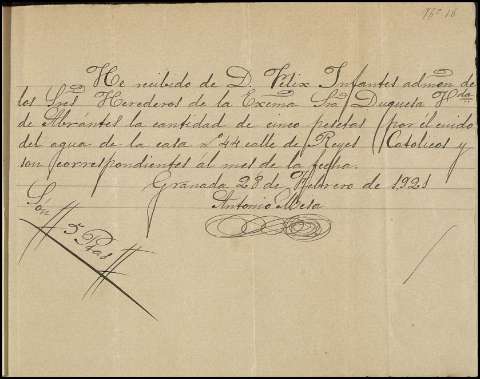 Nº 16
He recibido de D. Felix Infantes admon de
los Sres Herederos de la Excma Sra Duquesa Vda
de Abrántes la cantidad de cinco pesetas por el cuido
del agua de la casa nº 44 calle de Reyes Catolicos y
son correspondientes al mes de la fecha.
Granada 28 de Febrero de 1921
Antonio Mesa
Són
5 Ptas